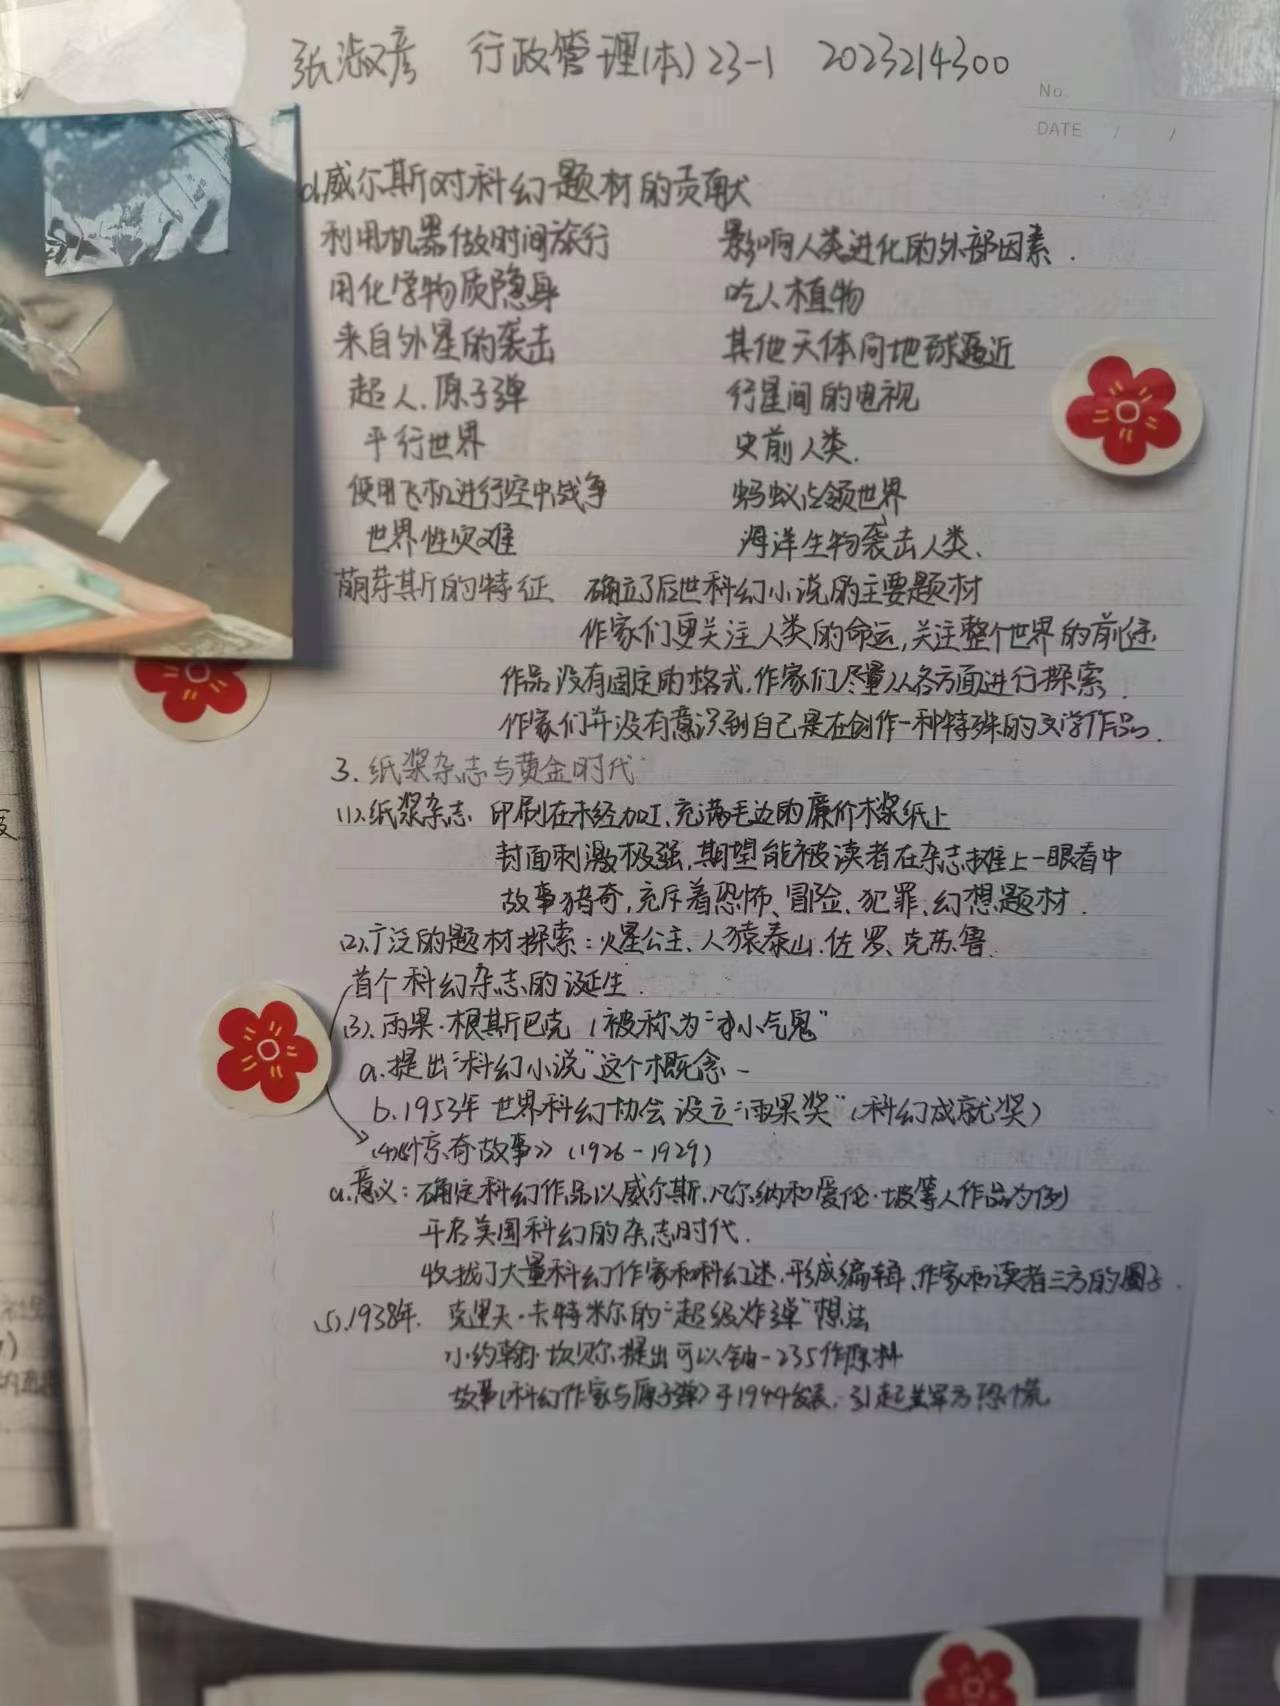 张淑彦 行政管理(本)23-1 2023214300
No.
DATE / /
d.威尔斯对科幻题材的贡献
利用机器做时间旅行 影响人类进化的外部因素.
用化学物质隐身 吃人植物
来自外星的袭击 其他天体向地球逼近
超人.原子弹 行星间的电视
平行世界 史前人类.
使用飞机进行空中战争 蚂蚁占领世界
世界性灾难 海洋生物袭击人类、
萌芽期的特征 确立了后世科幻小说的主要题材
作家们更关注人类的命运,关注整个世界的前途
作品没有固定的格式,作家们尽量从各方面进行探索.
作家们并没有意识到自己是在创作一种特殊的文学作品.
3.纸浆杂志与黄金时代
(1).纸浆杂志 印刷在未经加工、充满毛边的廉价木浆纸上
封面刺激极强,期望能被读者在杂志摊上一眼看中
故事猎奇,充斥着恐怖、冒险、犯罪、幻想题材.
(2).广泛的题材探索:火星公主、人猿泰山.佐罗、克苏鲁.
首个科幻杂志的诞生.
(3).雨果·根斯巴克(被称为"小气鬼"
a.提出"科幻小说"这个概念
b.1953年世界科幻协会设立"雨果奖"(科幻成就奖)
(4)《惊奇故事》(1926-1929)
a.意义:确定科幻作品以威尔斯,凡尔纳和爱伦·坡等人作品为例
开启美国科幻的杂志时代.
收拢了大量科幻作家和科幻迷,形成编辑、作家和读者三方的圈子.
(5).1938年. 克里夫·卡特米尔的"超级炸弹"想法
小约翰·坎贝尔提出可以铀-235作原料
故事(科幻作家与原子弹)于1944发表,引起美军方恐慌